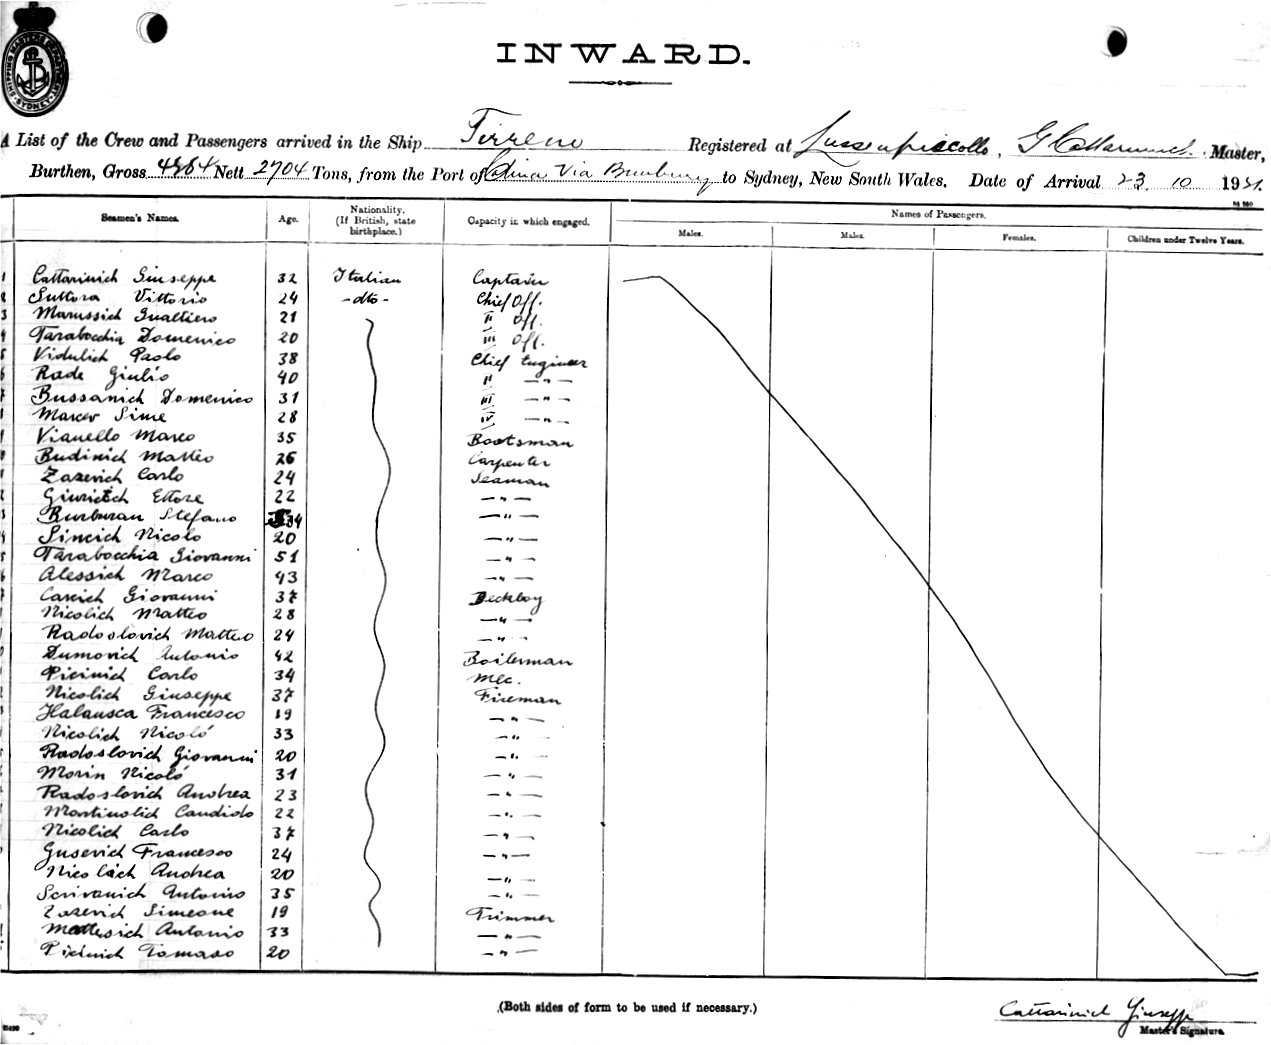 SHIPPING MASTER'S DEPARTMENT SYDNEY
INWARD.
A List of the Crew and Passengers arrived in the Ship Tirreno Registered at Lussinpiccolo, G Cattarinich Master,
Burthen, Gross 4864 Nett 2704 Tons, from the Port of Via Bunbury to Sydney, New South Wales. Date of Arrival 23 10 1921.
Seamen's Names. Age. Nationality. (If British, state birthplace.) Capacity in which engaged. Names of Passengers.
Males. Males. Females. Children under Twelve Years.
1 Cattarinich Giuseppe 32 Italian Captain
2 Suttora Vittorio 24 -dto- Chief Off.
3 Marussich Gualtiero 21 II Off.
4 Tarabocchia Domenico 20 III Off.
5 Vidulich Paolo 38 Chief Engineer
6 Rade Giulio 40 II -"-
7 Bussanich Domenico 31 III -"-
Marcev Sime 28 IV -"-
Vianello Marco 35 Bootsman
Budinich Matteo 26 Carpenter
Zazevich Carlo 24 Seaman
2 Giurietich Ettore 22 -"-
3 Burburan Stefano 34 -"-
4 Sincich Nicolo 20 -"-
5 Tarabocchia Giovanni 51 -"-
6 Alessich Marco 43 -"-
7 Carcich Giovanni 37 Deckboy
Nicolich Matteo 28 -"-
Radoslovich Matteo 24 -"-
Dumovich Antonio 42 Boilerman
Picinich Carlo 34 Mec.
Nicolich Giuseppe 37 Fireman
Halausca Francesco 19 -"-
Nicolich Nicoló 33 -"-
Radoslovich Giovanni 20 -"-
Morin Nicoló 31 -"-
Radoslovich Andrea 23 -"-
Martinolich Candido 22 -"-
Nicolich Carlo 37 -"-
Gusevich Francesco 24 -"-
Nicolich Andrea 20 -"-
Scrivanich Antonio 35 -"-
Zazevich Simeone 19 Trimmer
Mattesich Antonio 33 -"-
Picinich Tomaso 20 -"-
(Both sides of form to be used if necessary.)
Cattarinich Giuseppe
Master's Signature.